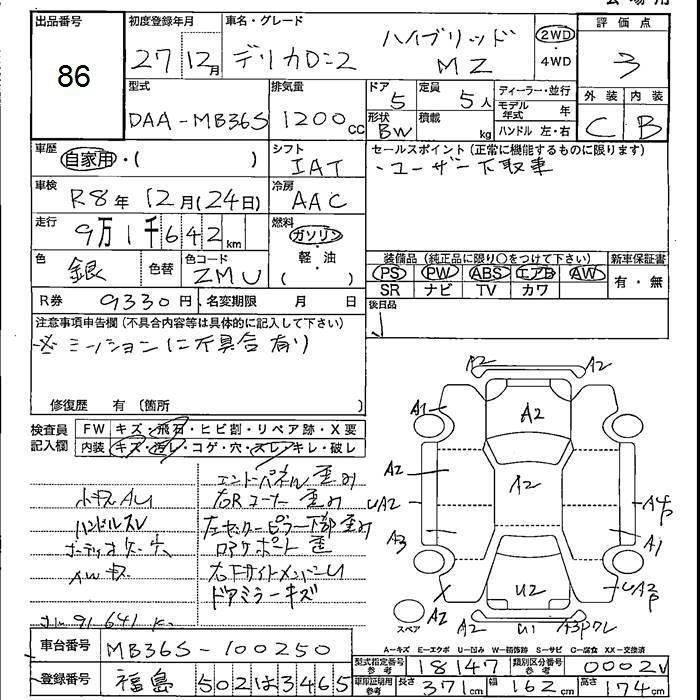 出品番号
86
初度登録年月
27 12月
車名・グレード
デリカD:2 ハイブリッド MZ
2WD
・
4WD
評価点
3
外装 内装
C B
型式
DAA-MB36S
排気量
1200cc
ドア
5
定員
5人
形状
BW
積載
kg
ディーラー・並行
モデル年式 年
ハンドル 左・右
車歴
自家用・( )
シフト
IAT
セールスポイント(正常に機能するものに限ります)
・ユーザー下取車
車検
R8年12月(24日)
冷房
AAC
走行
9万1千642km
燃料
ガソリン
・
軽・油
( )
色
銀
色替
色コード
ZMU
装備品(純正品に限り○をつけて下さい)
PS PW ABS エアB AW
SR ナビ TV カワ
新車保証書
有・無
R券 9330円
名変期限 月 日
後日品
注意事項申告欄(不具合内容等は具体的に記入して下さい)
※ミッションに不具合有り
修復歴 有〔箇所 〕
検査員記入欄
FW キズ・飛石・ヒビ割・リペア跡・X要
内装 キズ・汚レ・コゲ・穴・スレ・キレ・破レ
エンドパネル歪み
右Rコーナー歪み
ハンドルスレ
左センターピラー下部歪み
ロアサポート歪
AWキズ
右下サイドメンバーU
ドアミラーキズ
91,641
A2 A2
A1 A2
A2 A2
UA2
A3 A1
U2
A2 U1
スペア
A-キズ E-エクボ U-凹み W-補修跡 S-サビ C-腐食 XX-交換済
車台番号
MB36S-100250
登録番号
福島 502は3465
型式指定番号 参考
18147
類別区分番号 参考
0002
車庫証明用 参考
長さ 371cm 幅 162cm 高さ 174cm